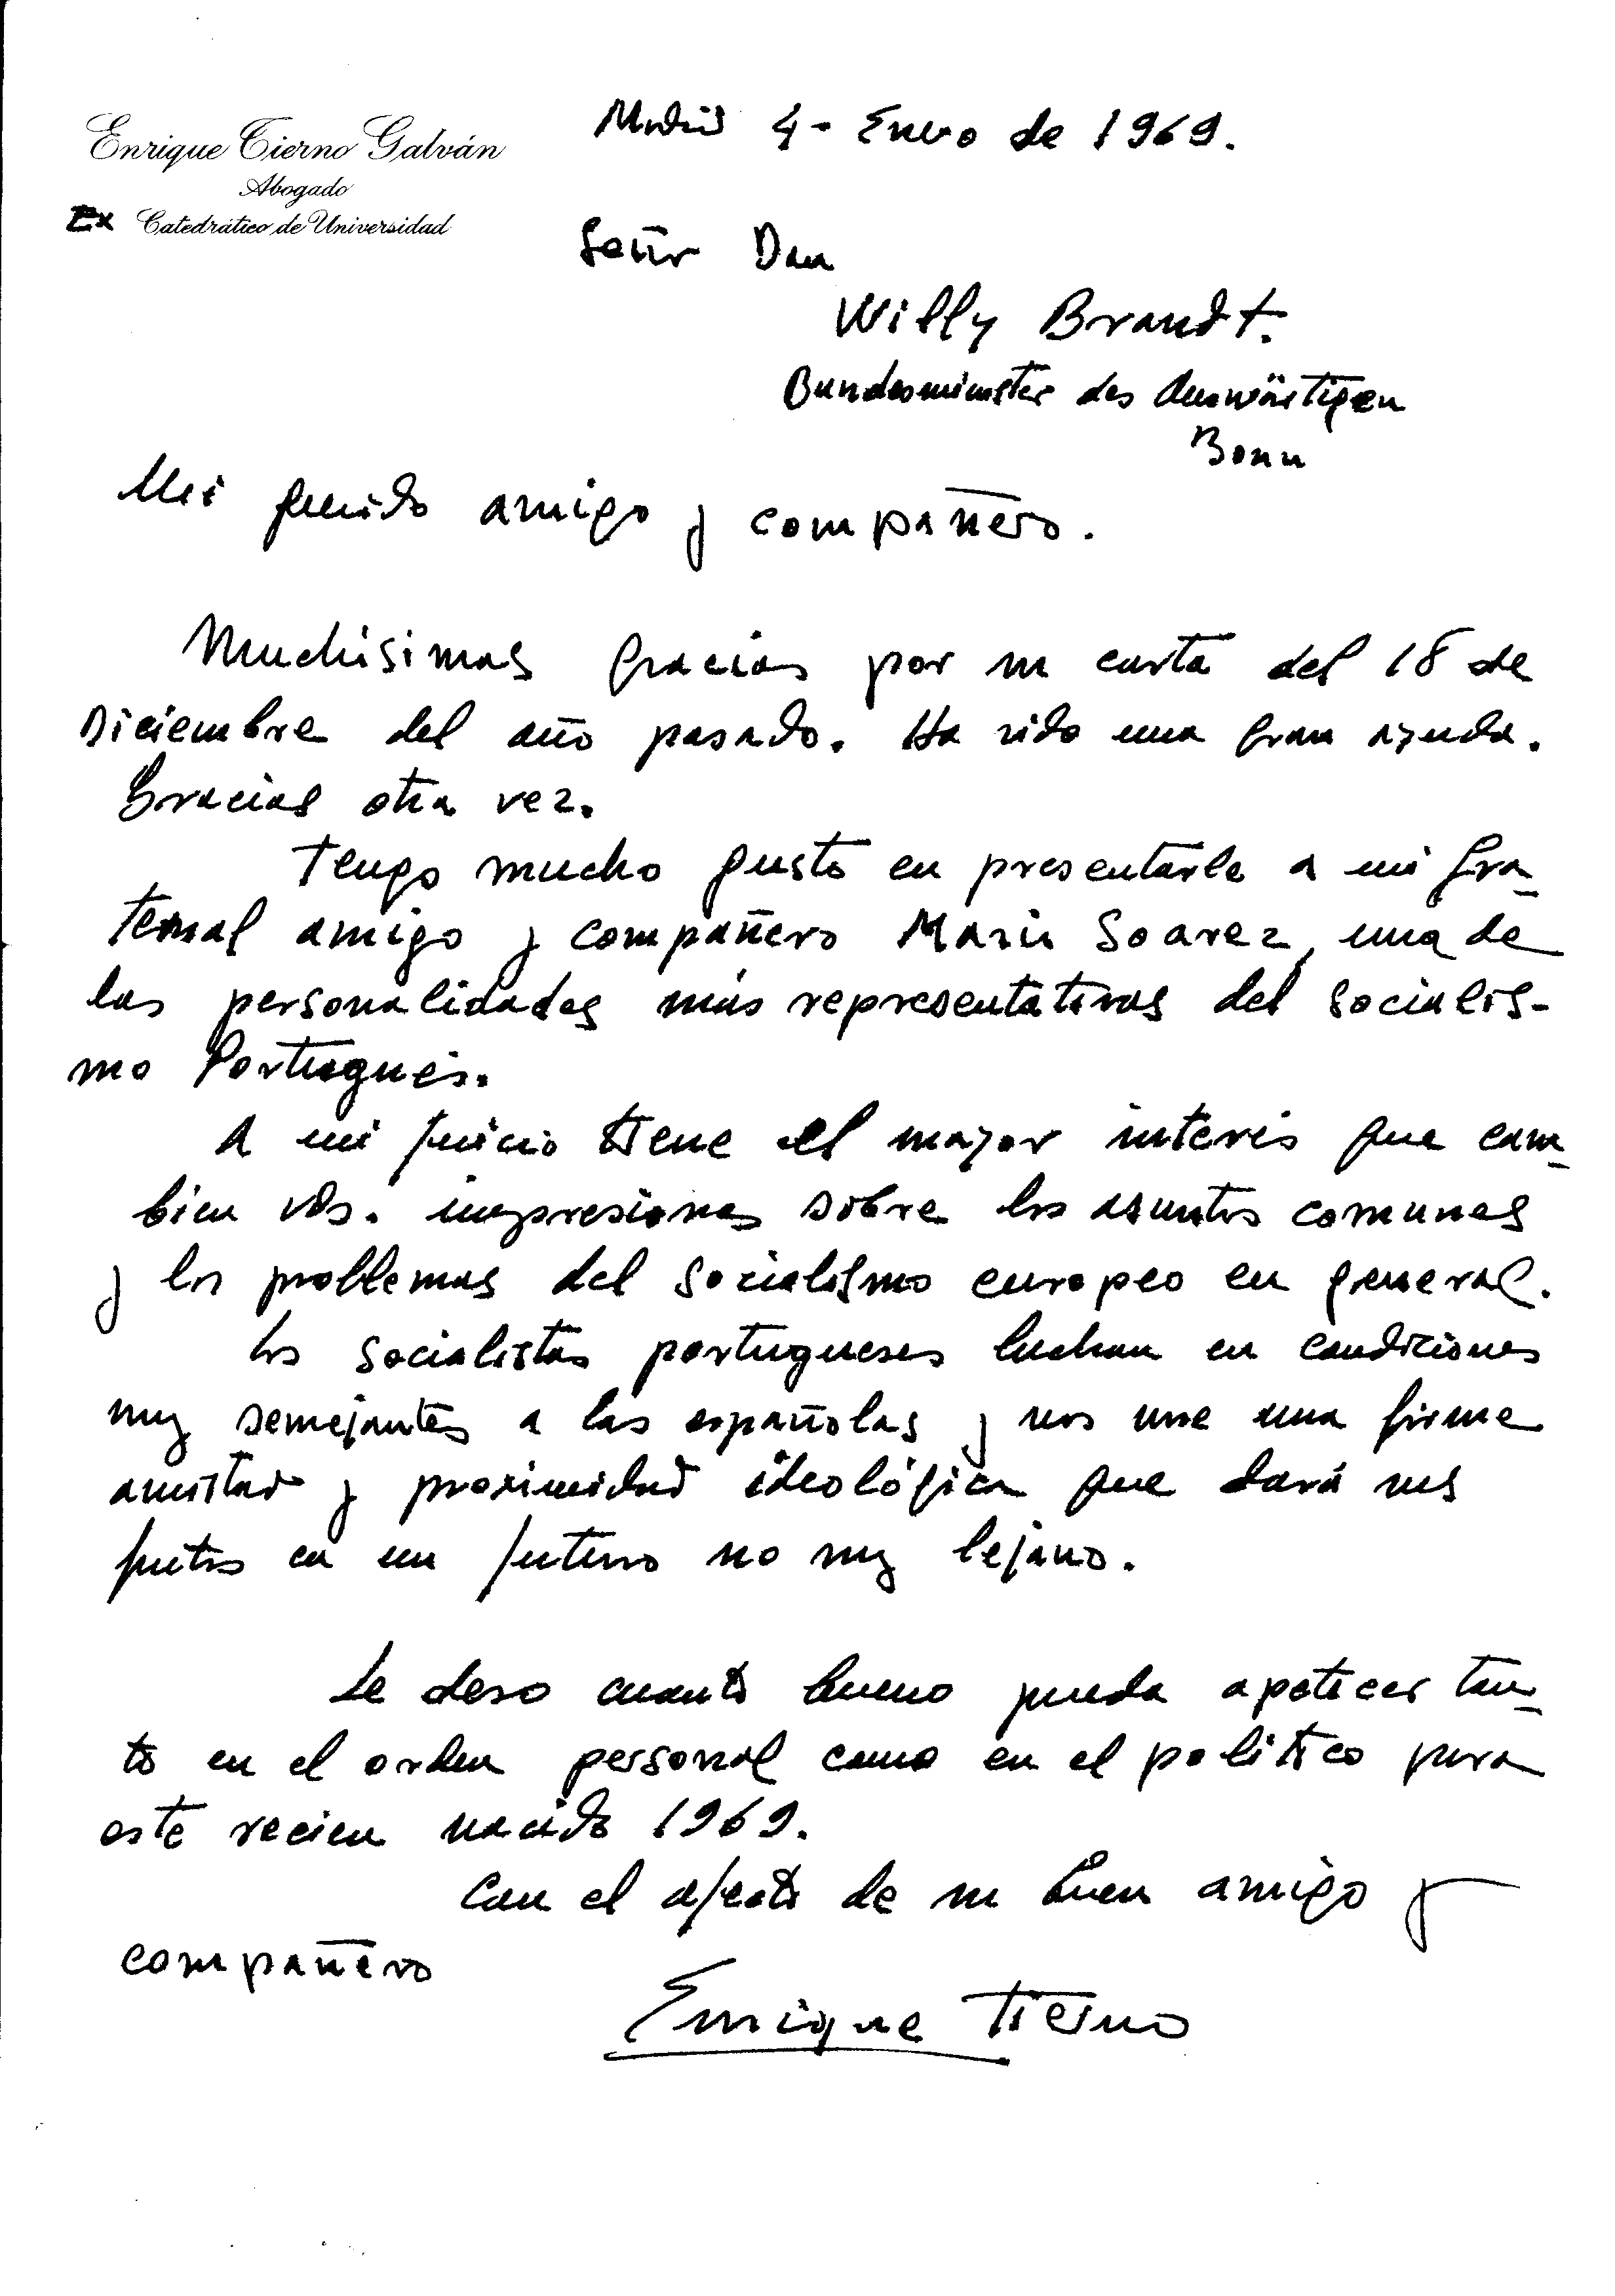 Enrique Tierno Galván
Abogado
Ex Catedrático de Universidad
Madrid 4 - Enero de 1969.
Señor Don
Willy Brandt.
Bundesminister des Auswärtigen
Bonn
Mi querido amigo y compañero.
Muchísimas gracias por su carta del 18 de
Diciembre del año pasado. Ha sido una gran ayuda.
Gracias otra vez.
Tengo mucho gusto en presentarle a mi fra-
ternal amigo y compañero Mario Soarez, una de
las personalidades más representativas del socialis-
mo Portugués.
A mi juicio tiene el mayor interés que cam-
bien Vds. impresiones sobre los asuntos comunes
y los problemas del socialismo europeo en general.
Los socialistas portugueses luchan en condiciones
muy semejantes a las españolas y nos une una firme
amistad y proximidad ideológica que dará sus
frutos en un futuro no muy lejano.
Le deseo cuanto bueno pueda apetecer tan-
to en el orden personal como en el politico para
este recien nacido 1969.
Con el afecto de su buen amigo y
compañero
Enrique Tierno